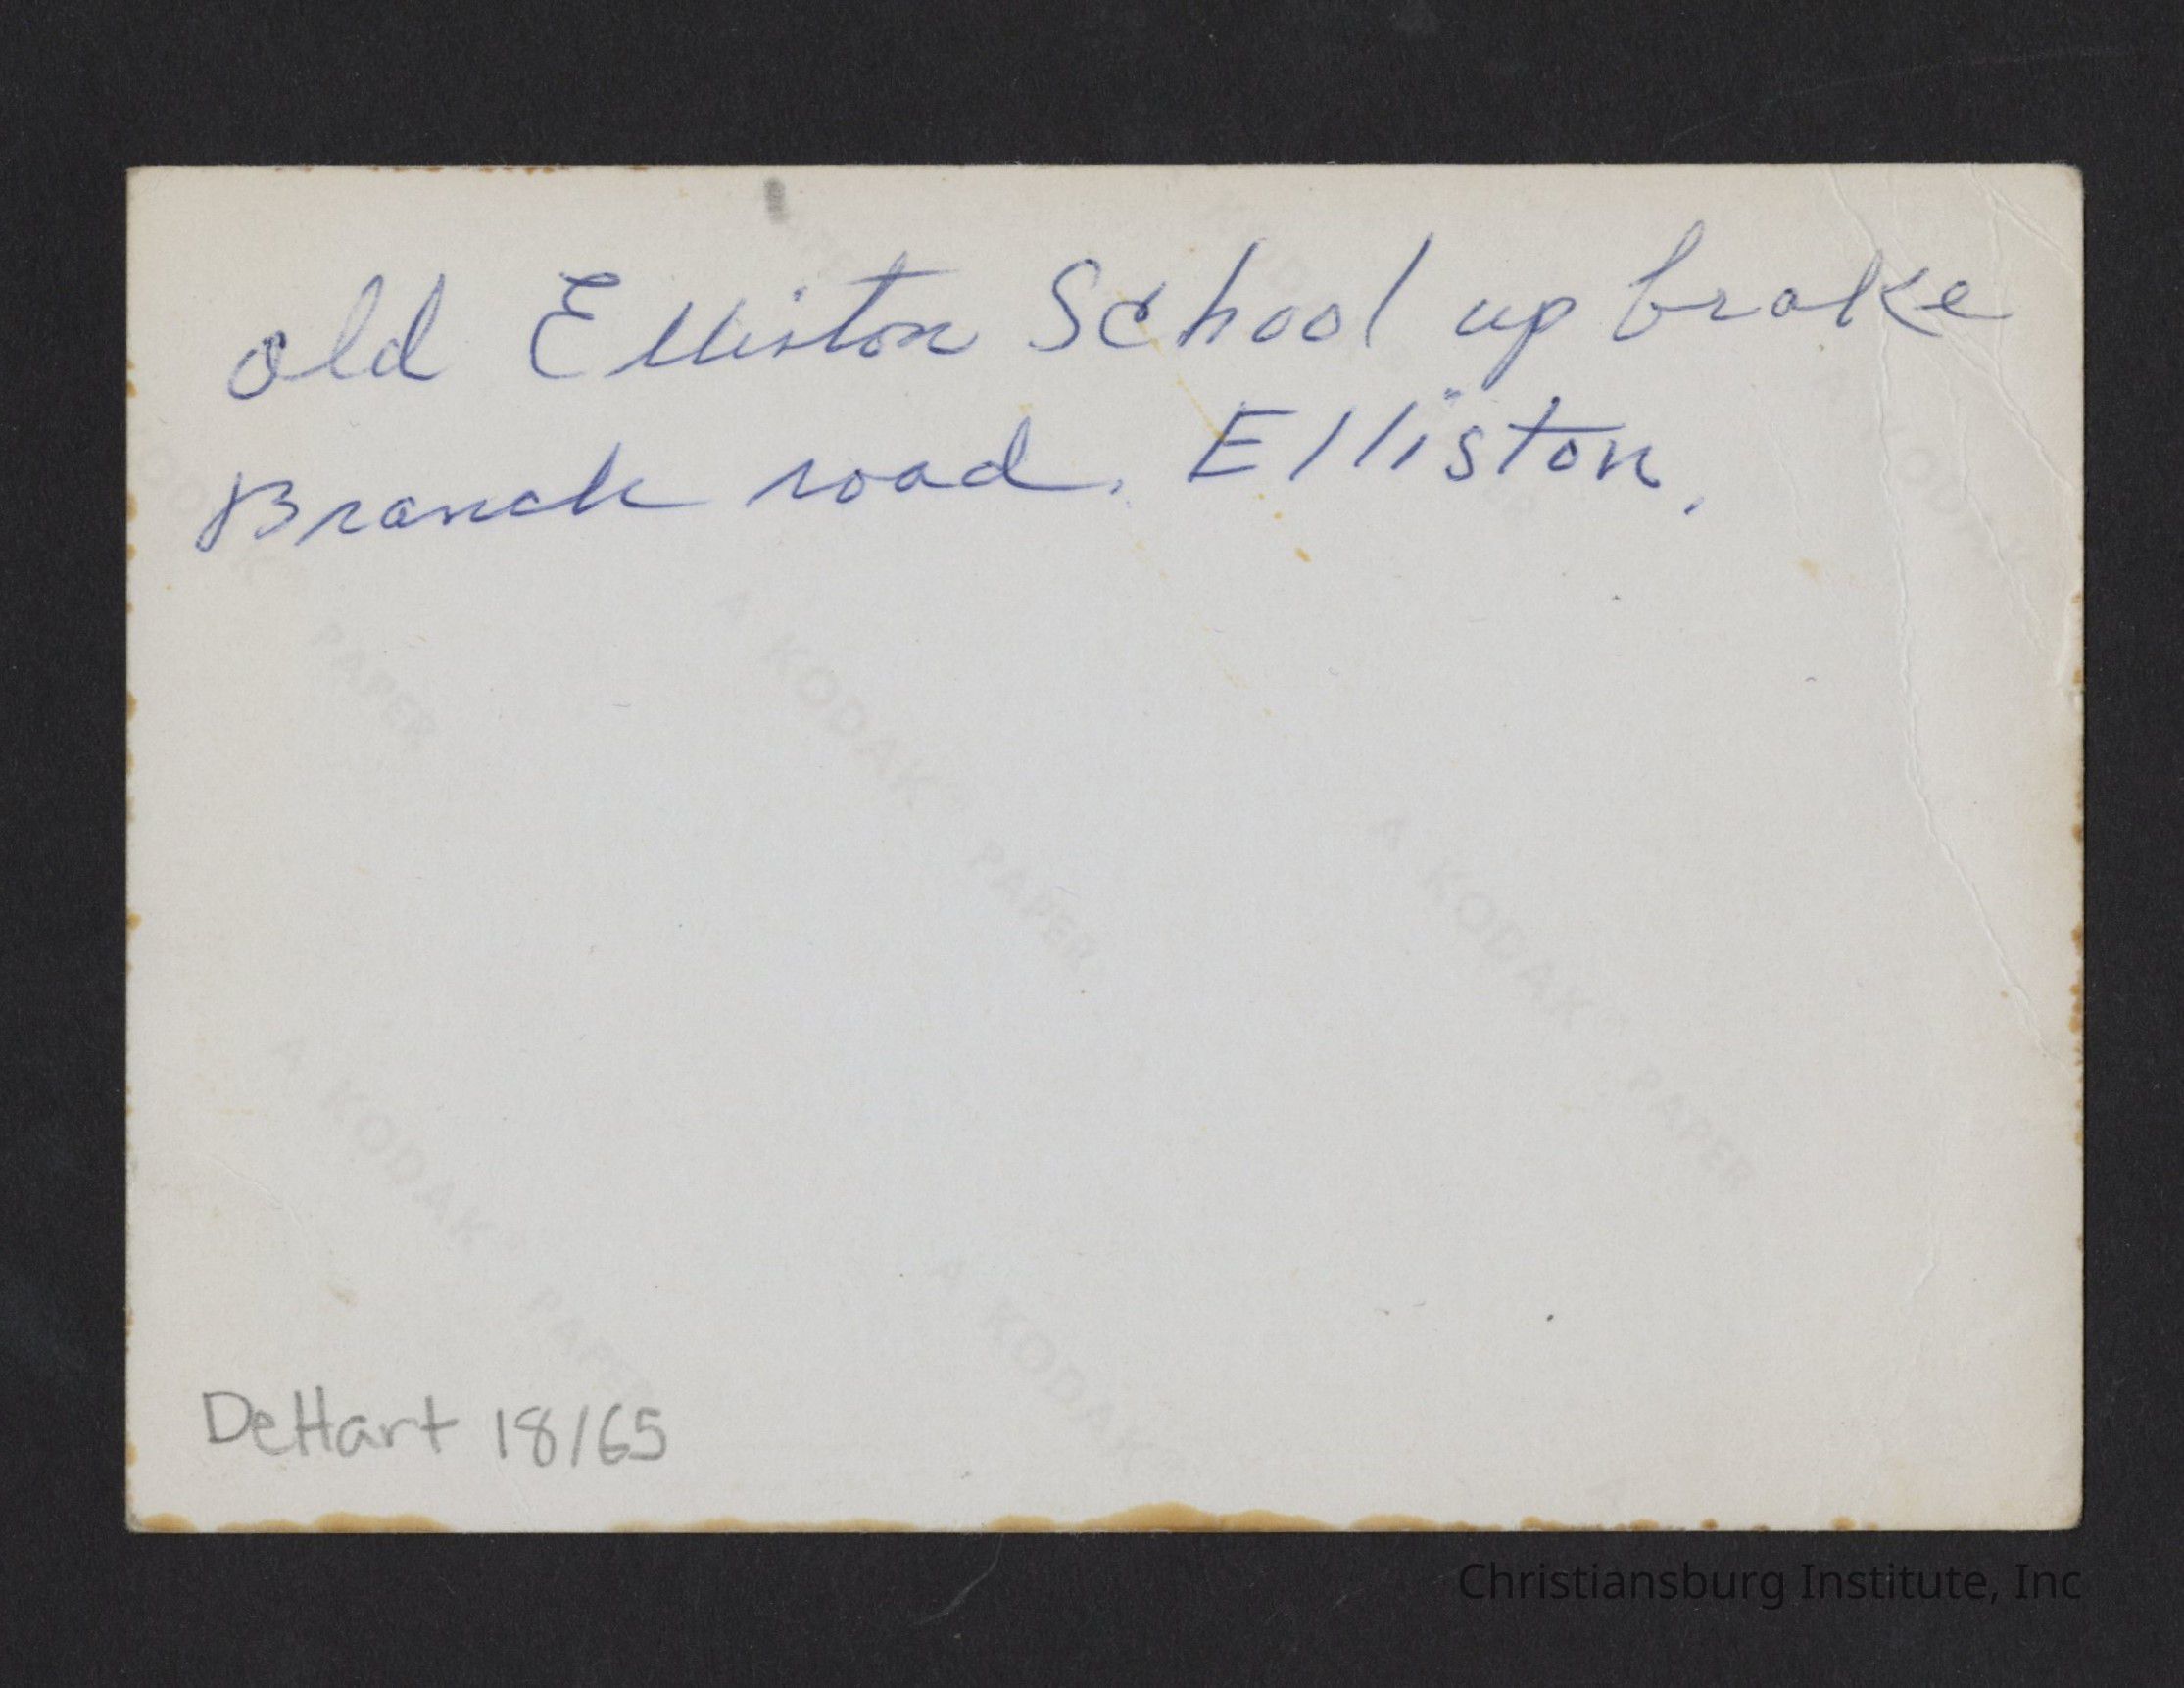 old Elliston School up brake
Branch road. Elliston.
A KODAK® PAPER
A KODAK® PAPER
A KODAK® PAPER
A KODAK
DeHart 18/65
Christiansburg Institute, Inc